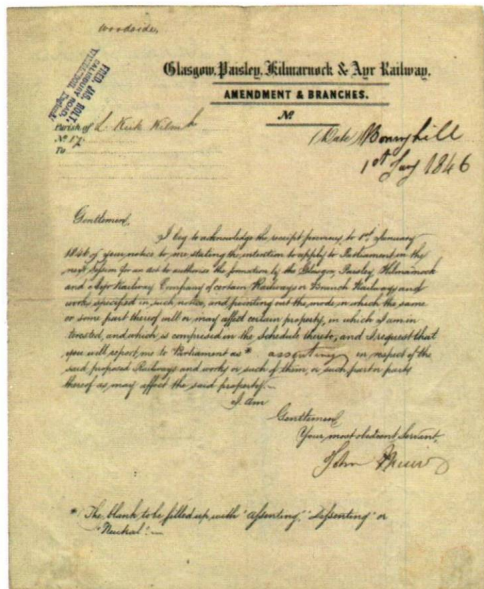 Woodside,
FRED. JAS. BOLT,
SALISBURY ROAD,
Glasgow, Paisley, Kilmarnock & Ayr Railway.
AMENDMENT & BRANCHES.
Parish of L Kirk Kilmk
No
No 17
Date Bonnyhill
To
1st Jany 1846
Gentlemen,
I beg to acknowledge the receipt previous to 1st January
1846 of your notice to me stating the intention to apply to Parliament in the
next Session for an act to authorise the formation by the Glasgow, Paisley, Kilmarnock
and Ayr Railway Company of certain Railways or Branch Railways and
works specified in such notice, and pointing out the mode in which the same
or some part thereof will or may affect certain property, in which I am in-
terested, and which is comprised in the Schedule thereto, and I request that
you will report me to Parliament as * assenting in respect of the
said proposed Railways and works or such of them, or such part or parts
thereof as may affect the said property.—
I am
Gentlemen,
Your most obedient Servant,
John
* The blank to be filled up with "Assenting," "Dissenting" or
"Neutral".—